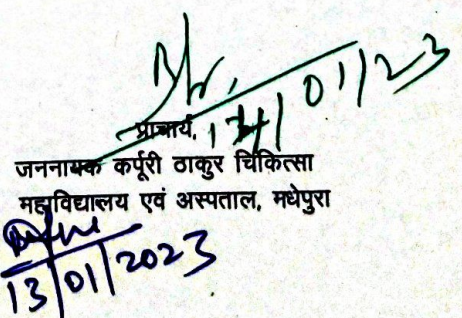 प्राचार्य,
/01/23
जननायक कर्पूरी ठाकुर चिकित्सा
महाविद्यालय एवं अस्पताल, मधेपुरा
13/01/2023